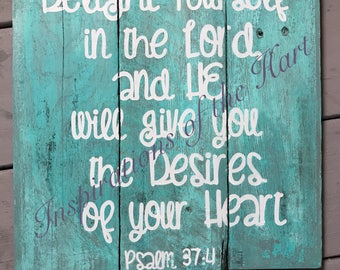 Delight Yourself
in the Lord,
and HE
will give you
the Desires
of your Heart
Psalm 37:4
Inspirations of the Hart